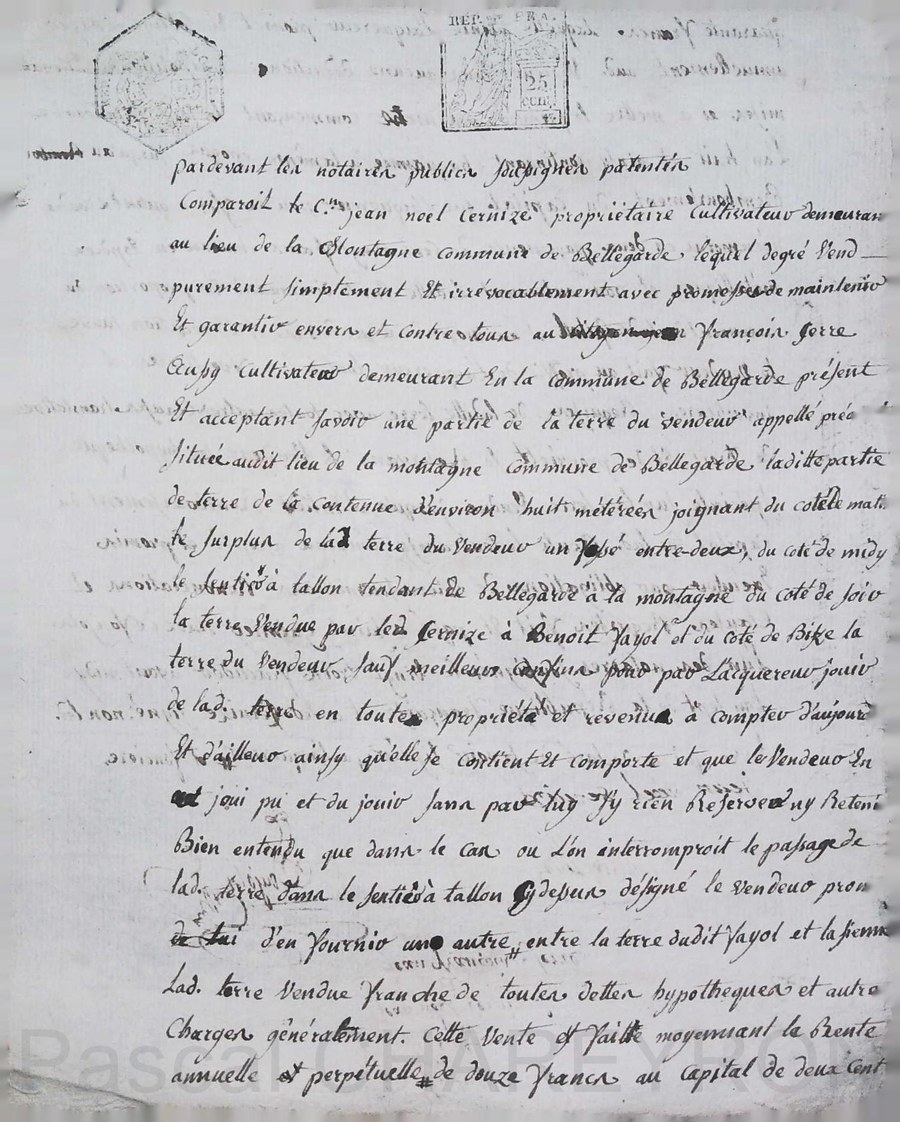 REP. FRA.
25
CEN.
pardevant les notaires publics soussignés patentés
Comparoit le C.en jean noel Cernize propriétaire Cultivateur demeuran
au lieu de la Montagne commune de Bellegarde lequel degré Vend
purement simplement Et irrévocablement avec promesse de maintenir
Et garantir envers et contre tous au françois serre
cultivateur demeurant En la commune de Bellegarde présent
Et acceptant savoir une partie de la terre du vendeur appellé pré
située audit lieu de la montagne commune de Bellegarde laditte partie
de terre de la contenue d'environ huit métérées joignant du coté de mati
le surplus de lad terre du Vendeur un fossé entre-deux, du coté de midy
le sentier à tallon tendant de Bellegarde à la montagne du coté de soir
la terre Vendue par led Cernize à Benoit fayol et du coté de Bize la
terre du Vendeur sauf meilleurs confins pour par L'acquereur jouir
de lad. terre en toute propriété et revenus à compter d'aujourd
Et d'ailleur ainsy qu'elle se contient Et comporte et que le Vendeur En
joui pu et du jouir sans par luy s'y rien Reserver ny Reteni
Bien entendu que dans le cas ou L'on interromproit le passage de
lad. terre dans le sentier à tallon cydessus désigné le vendeur prom
d'en fournir un autre entre la terre dudit fayol et la sienne
Lad. terre Vendue franche de toutes dettes hypotheques et autre
Charges généralement. Cette Vente est faitte moyennant la Rente
annuelle et perpétuelle de douze francs au Capital de deux Cent
Pascal CHAREYRON